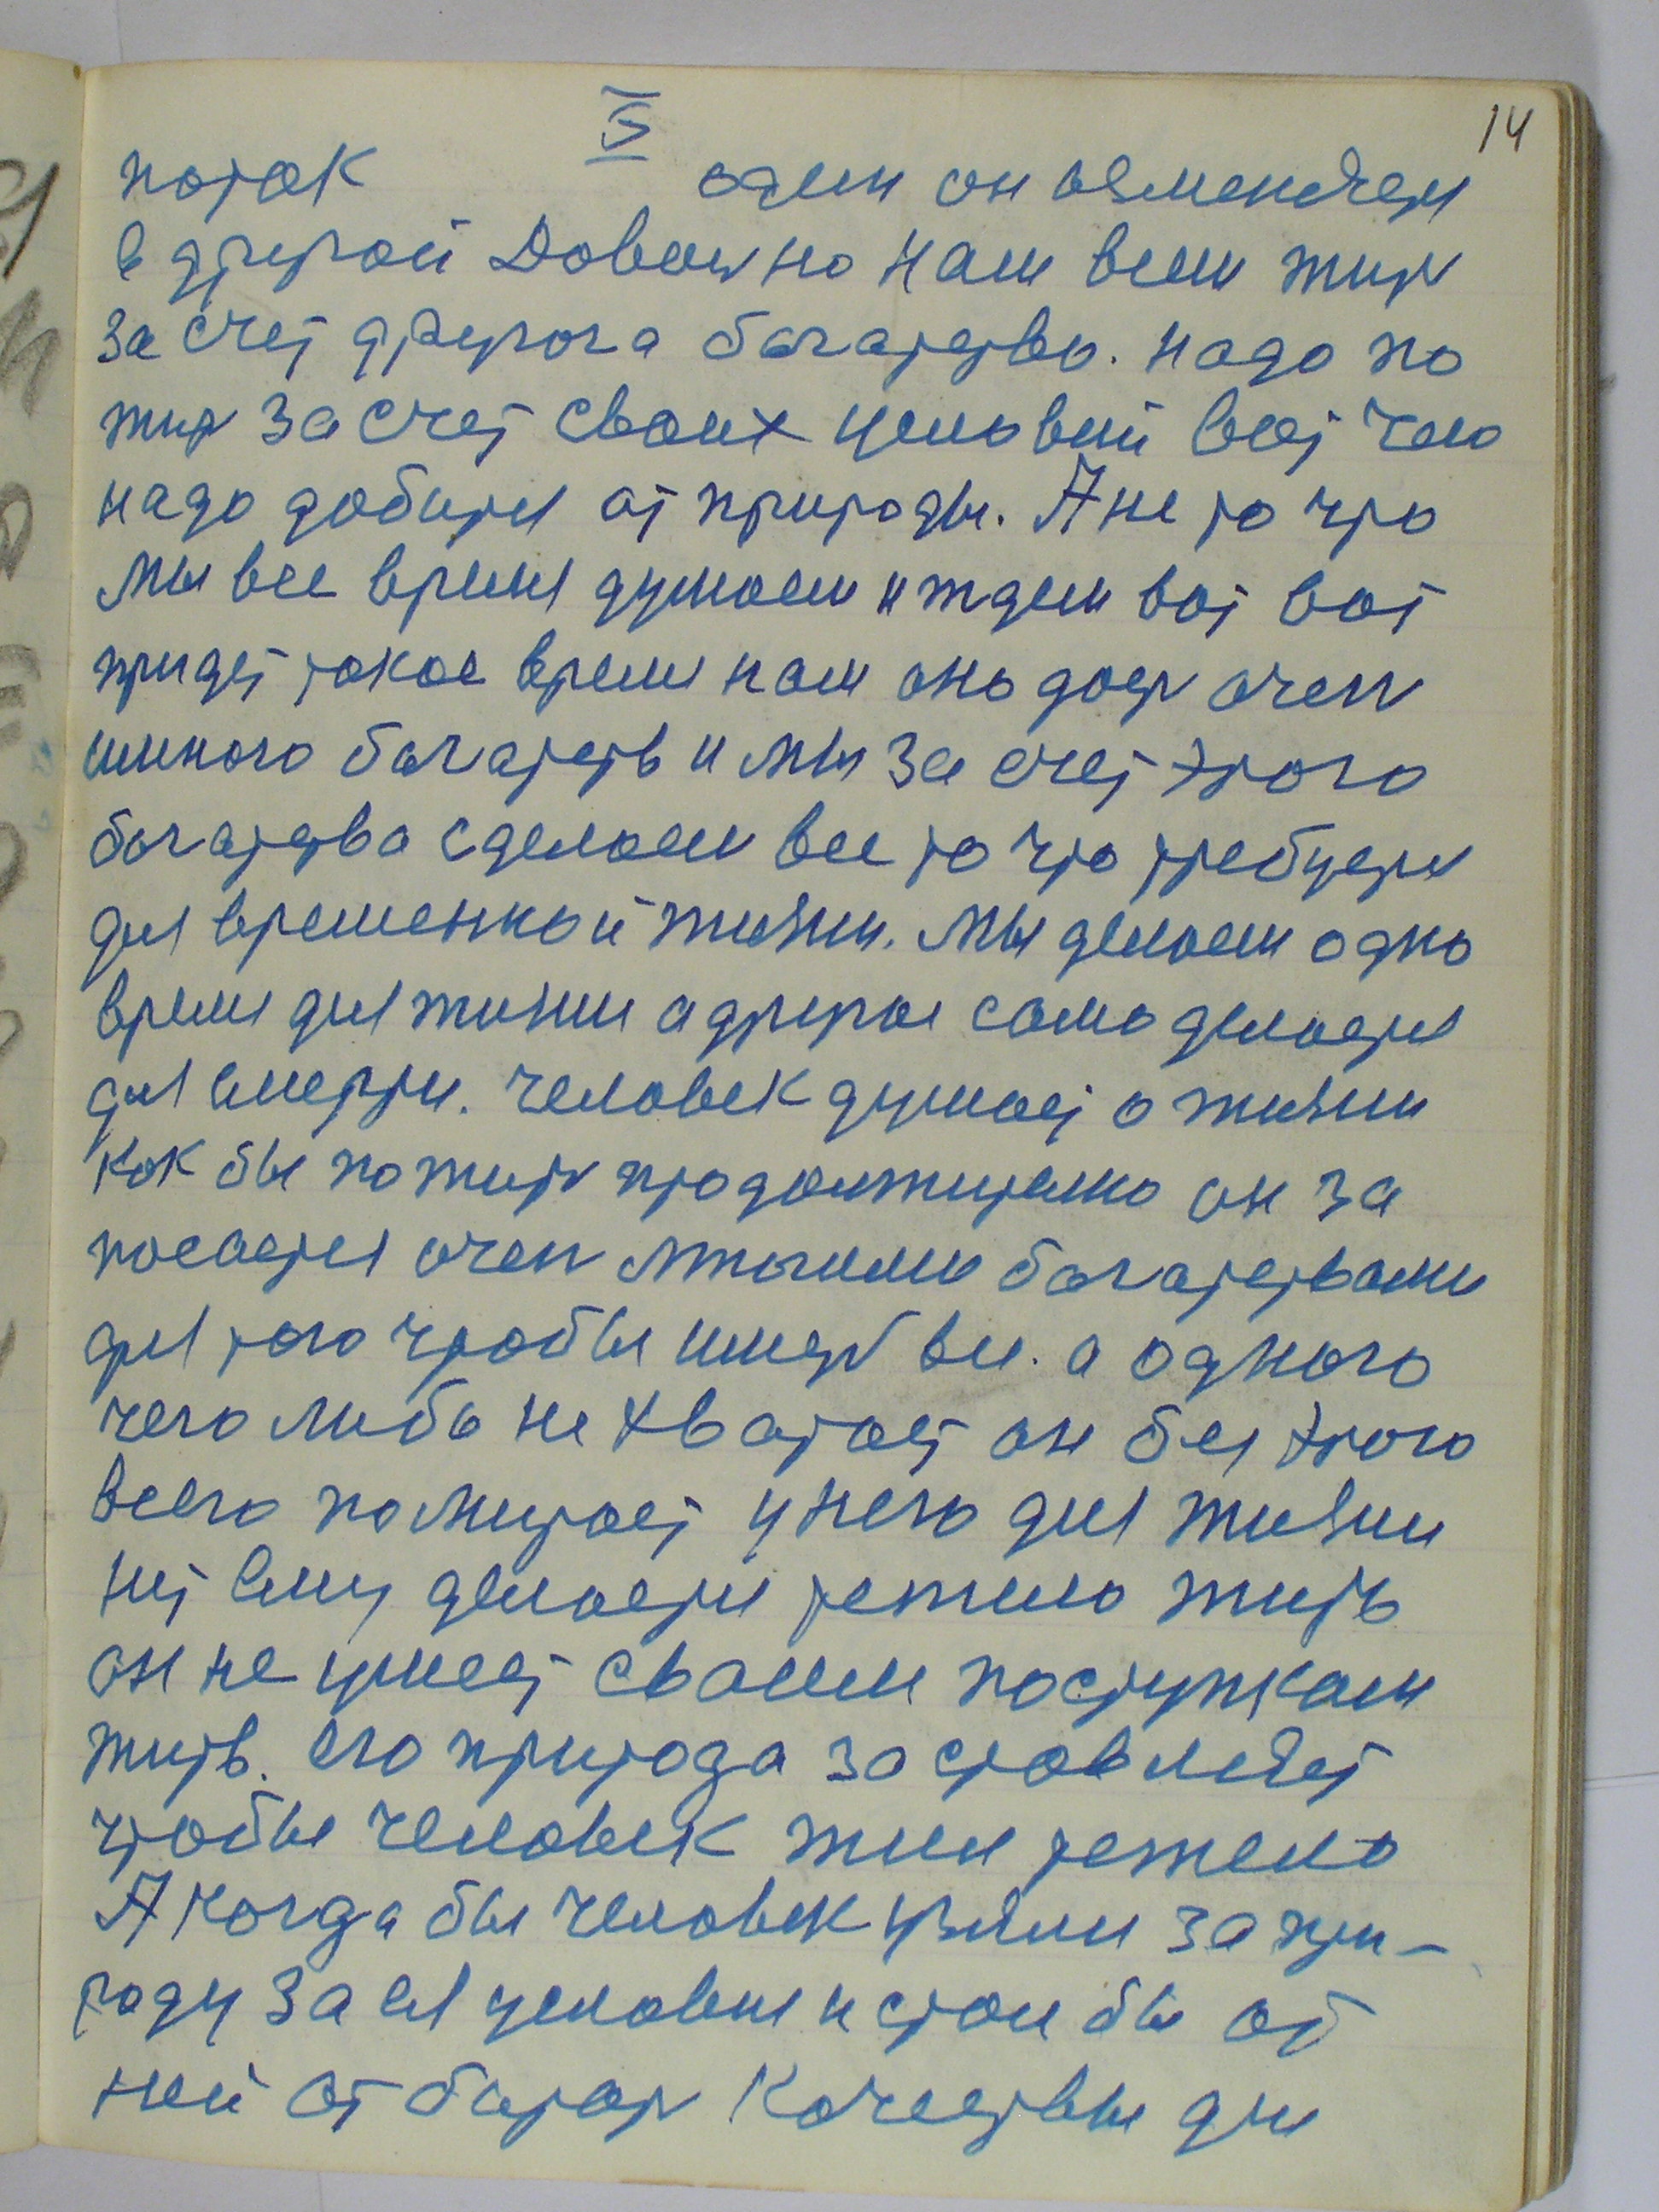 14
V
поток один он изменяетя
в другой Доволно нам всем жить
за счет другога багатство. надо по
жить за счет своих условий всего
надо добитя от природы. А не то что
мы все время думаем и ждем вот вот
придет такое время нам оно дасть очень
много багатств и мы за счет этого
багатства сделаем все то что требуетя
для временной жизни. мы делаем одно
время для жизни а другое само делаетя
для смерти. человек думает о жизни
как бы пожить продолжително он за
посаетя очень многими багатствами
для того чтобы иметь все. а одного
чего либо не хватает он без этого
всего помирает у него для жизни
нет ему делаетя тежело жить
он не умеет своими поступкам
жить. его природа заставляет
чтобы человек жил тежело
А когда бы человек узялся за при-
роду за ея условия и стал бы от
ней отбирать качествы для